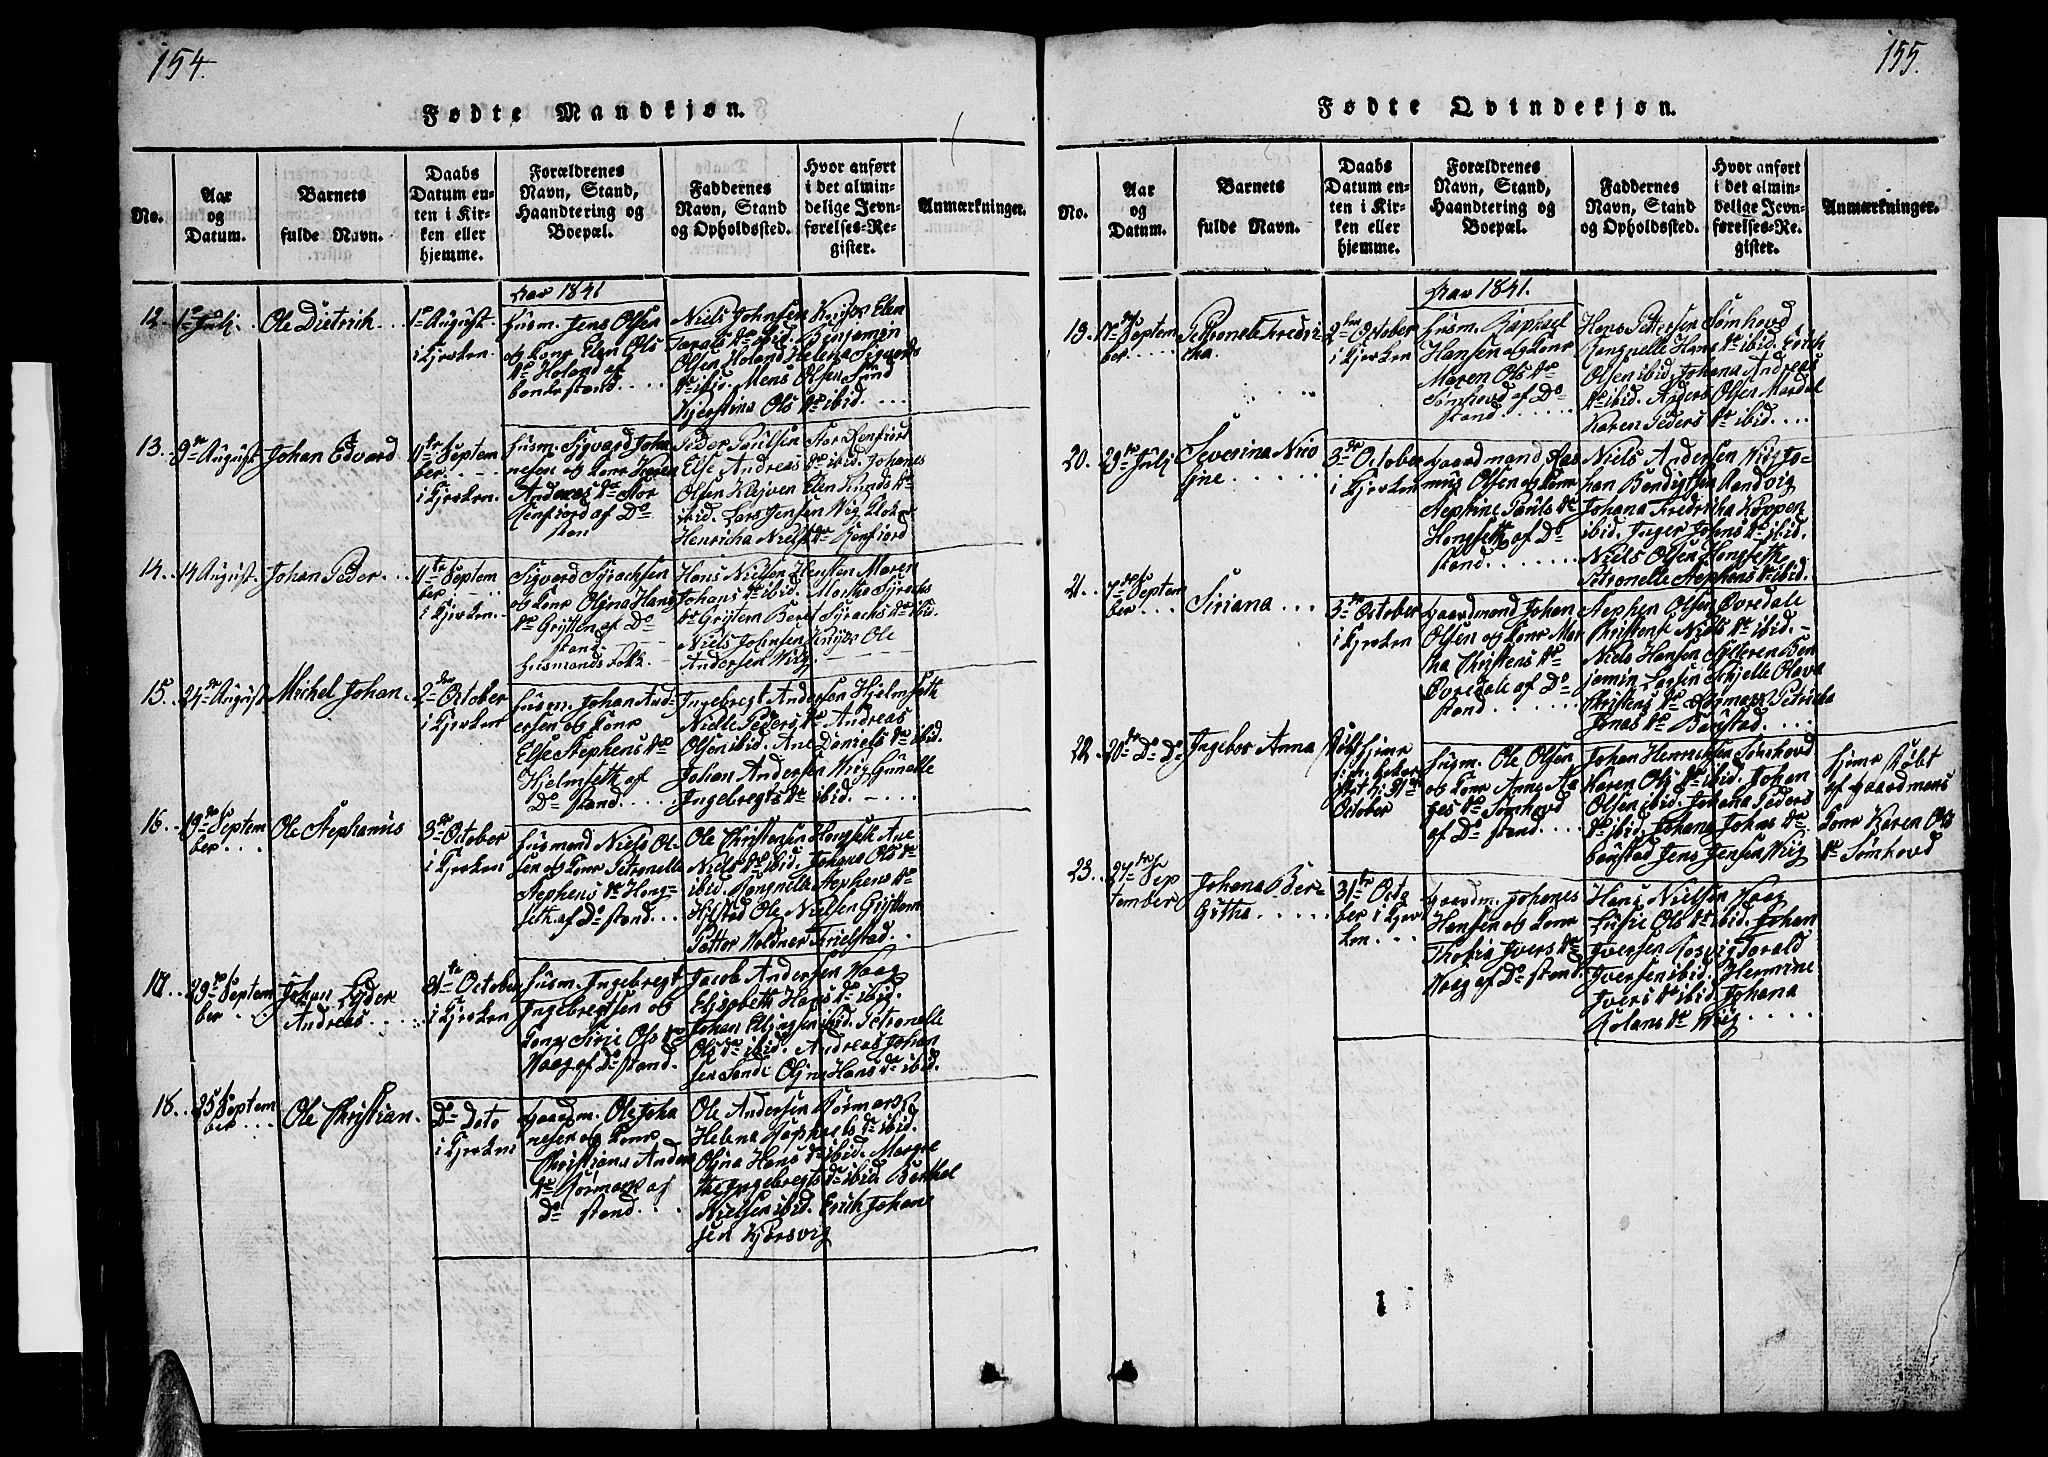 154.
Fødte Mandkjøn.
No.
Aar
og
Datum.
Barnets
fulde Navn.
Daabs
Datum en-
ten i Kir-
ken eller
hjemme.
Forældrenes
Navn, Stand,
Haandtering og
Boepæl.
Faddernes
Navn, Stand
og Opholdssted.
Hvor anført
i det almin-
delige Jevn-
førelses-Re-
gister.
Anmærkninger.
Aar 1841
12.
Juli
Ole Dietrich
1te August
i Kjerken.
Husm. Jens Olsen
og Kone Elen Ols
dr Holand af
bondestand
Niels Johnsen
Olsen Holand
dr ibid. Mons Olsen Sund
Kjerstina Ols dr ibid.
13.
9de August
Johan Edvard
Septem
ber
i Kjerken.
Husm. Sigvard Joha
nesen og Kone
Andreas dr Stor
Renfjord af Do
stand
Peder Poulsen Stor Renfiord
Else Andreas dr ibid. Johanes
ibid. Lars Jensen Wiig
Henricha Niels dr Renfiord
14.
14 August
Johan Peder
Septem
ber
i Kjerken.
Sigvard Syrachsen
og Kone Olina Hans
dr Gristen af Do
stand
Husmands Folk
Hans Nielsen Hensten Maren
Johans dr ibid. Martha Syrachs
dr Gristem Beret Syrachs dr ibid.
Niels Johnsen Ole
Andersen Wiig.
15.
24de August
Michel Johan
2den October
i Kjerken
Husm. Johan And-
ersen og Kone
Else Stephens dr
Hjelmseth af
Do stand
Ingebregt Andersen Hjelmseth
Nielle Peders dr Andreas
Olsen ibid. Ane Daniels dr ibid
Johan Andersen Wiig Gunelle
Ingebregts dr ibid.
16
19de Septem
ber
Ole Stephanus
3de October
i Kjerken
Husmand Niels Ol-
sen og Kone Petronelle
Stephens dr Hong-
seth af Do stand
Ole Christensen Hongseth Ane
Niels dr ibid. Johana Ols dr
ibid. Rongnelle Stephens dr
Ole Nielsen Gristem
Petter Woldner Trielstad.
17
29de Septem
ber
Johan Eyder
Andreas
31te October
i Kjerken
Husm. Ingebregt
Ingebregtsen og
Kone Sirie Ols dr
Haag af Do stand.
Jacob Andersen Haag
Elisabeth Hans dr ibid.
Johan Elingsen ibid. Petronelle
Ols dr ibid. Andreas Johan
sen Sand Oline Hans dr ibid.
18
25 Septem
ber
Ole Christian
Do Dato
i Kjerken
Gaardm. Ole Joha
nesen og Kone
Christiana Anders
dr Rørmark af
Do stand
Ole Andersen Rørmark
Helena Raphaels dr ibid.
Olina Hans dr ibid. Margre
the Ingebregts dr ibid. Berthel
Nielsen ibid. Erich Johan
sen Kjørsvig
155.
Fødte Qvindekjøn.
No.
Aar
og
Datum.
Barnets
fulde Navn.
Daabs
Datum en-
ten i Kir-
ken eller
hjemme.
Forældrenes
Navn, Stand,
Haandtering og
Boepæl.
Faddernes
Navn, Stand
og Opholdssted.
Hvor anført
i det almin-
delige Jevn-
førelses-Re-
gister.
Anmærkninger.
Aar 1841.
19.
17de Septem
ber
Petronele Fredri
cha
2den October
i Kjerken
Husm. Raphael
Hansen og Kone
Maren Ols dr
Sømhovd af Do
stand
Hans Pettersen Sømhovd
Rongnelle Hans dr ibid. Erich
Olsen ibid. Johana Andreas
dr ibid. Anders Olsen Mardal
Karen Peders dr ibid.
20.
29de Juli
Severina Nico
line
3de October
i Kjerken
Gaardmand Ras
mus Olsen og Kone
Stephine Pauls dr
Hongseth af Do
stand
Niels Andersen Wiig Jo-
han Bendigtsen Randvig
Johana Fredricha Koppen
ibid. Inger Johns dr ibid.
Niels Olsen Hongseth
Petronelle Stephens dr ibid.
21
7de Septem
ber
Siriana
3de October
i Kjerken
Gaardmand Johan
Olsen og Kone Mar
tha Christens dr
Øvredale af Do
stand
Stephen Olsen Øvredale
Christense Niels dr ibid.
Niels Hansen Ben
jamin Larsen Skjelle Olava
Christens dr Rørmark Petricha
Jonas dr Bøgstad.
22
20de Do Do
Ingebor Anna
October
Husm. Ole Olsen
og Kone Anne Aa
ges dr Sømhovd
af Do stand
Johan Henricksen Sømhovd
Karen Ols dr ibid. Johan
Olsen ibid. Johana Peders
dr ibid. Johana Johns dr
Bøgstad Jens Jensen Wiig
Hjeme Døbt
af Gaardmans
Kone Karen Ols
dr Sømhovd
23
27de Sep
tember
Johana Ber-
githa
31te Octo
ber i Kjer
ken
Gaardm. Johanes
Hansen og Kone
Thobia Ivers dr
Haag af Do stand.
Hans Nielsen Haag
Lusie Ols dr ibid. Johan
Iversen Rosvig Torald
Iversen ibid. Hermine
Ivers dr ibid Johana
Rolans dr Wiig